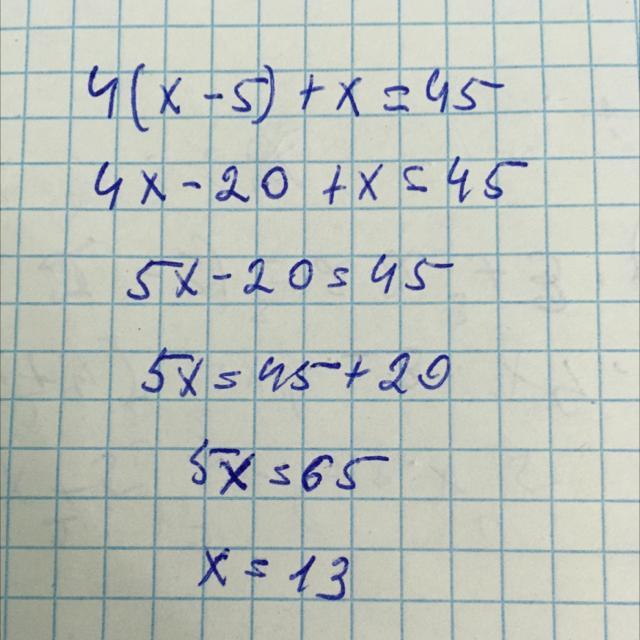 4(x-5)+x=45
4x-20+x=45
5x-20=45
5x=45+20
5x=65
x=13